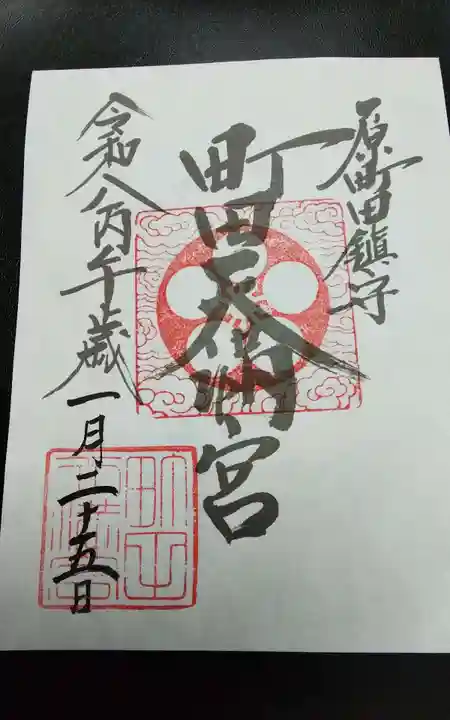 原町田鎮守
町田天満宮
令和八丙午歳一月二十五日